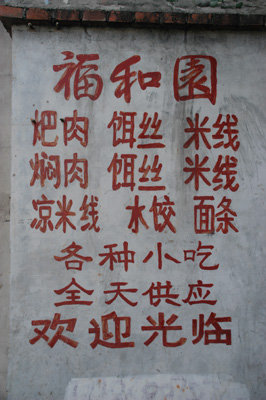 福和园
𤆵肉 饵丝 米线
焖肉 饵丝 米线
凉米线 水饺 面条
各种小吃
全天供应
欢迎光临